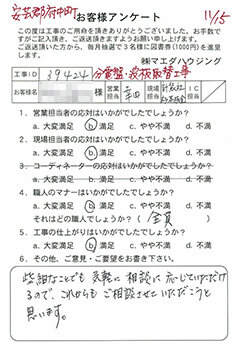 安芸郡府中町
お客様アンケート
11/15
この度は工事のご用命を頂きありがとうございました。お手数で
すがご記入頂き、ご返送頂きますようお願い申し上げます。
ご返送頂いた方から、毎月抽選で3名様に図書券(1000円)を進呈
します。
㈱マエダハウジング
工事ID 39424 分電盤・波板取替工事
お客様名 営業担当 現場担当 IC担当
1. 営業担当者の応対はいかがでしたでしょうか?
a. 大変満足 b. 満足 c. やや不満 d. 不満
2. 現場担当者の応対はいかがでしたでしょうか?
a. 大変満足 b. 満足 c. やや不満 d. 不満
3. コーディネーターの応対はいかがでしたでしょうか?
a. 大変満足 b. 満足 c. やや不満 d. 不満
4. 職人のマナーはいかがでしたでしょうか?
a. 大変満足 b. 満足 c. やや不満 d. 不満
それはどの職人でしょうか? (全員)
5. 工事の仕上がりはいかがでしたでしょうか?
a. 大変満足 b. 満足 c. やや不満 d. 不満
6. その他、ご意見・ご要望をお書き下さい。
些細なことでも 気軽に 相談に 応じていただけ
るので、これからも ご相談させていただこうと
思います。